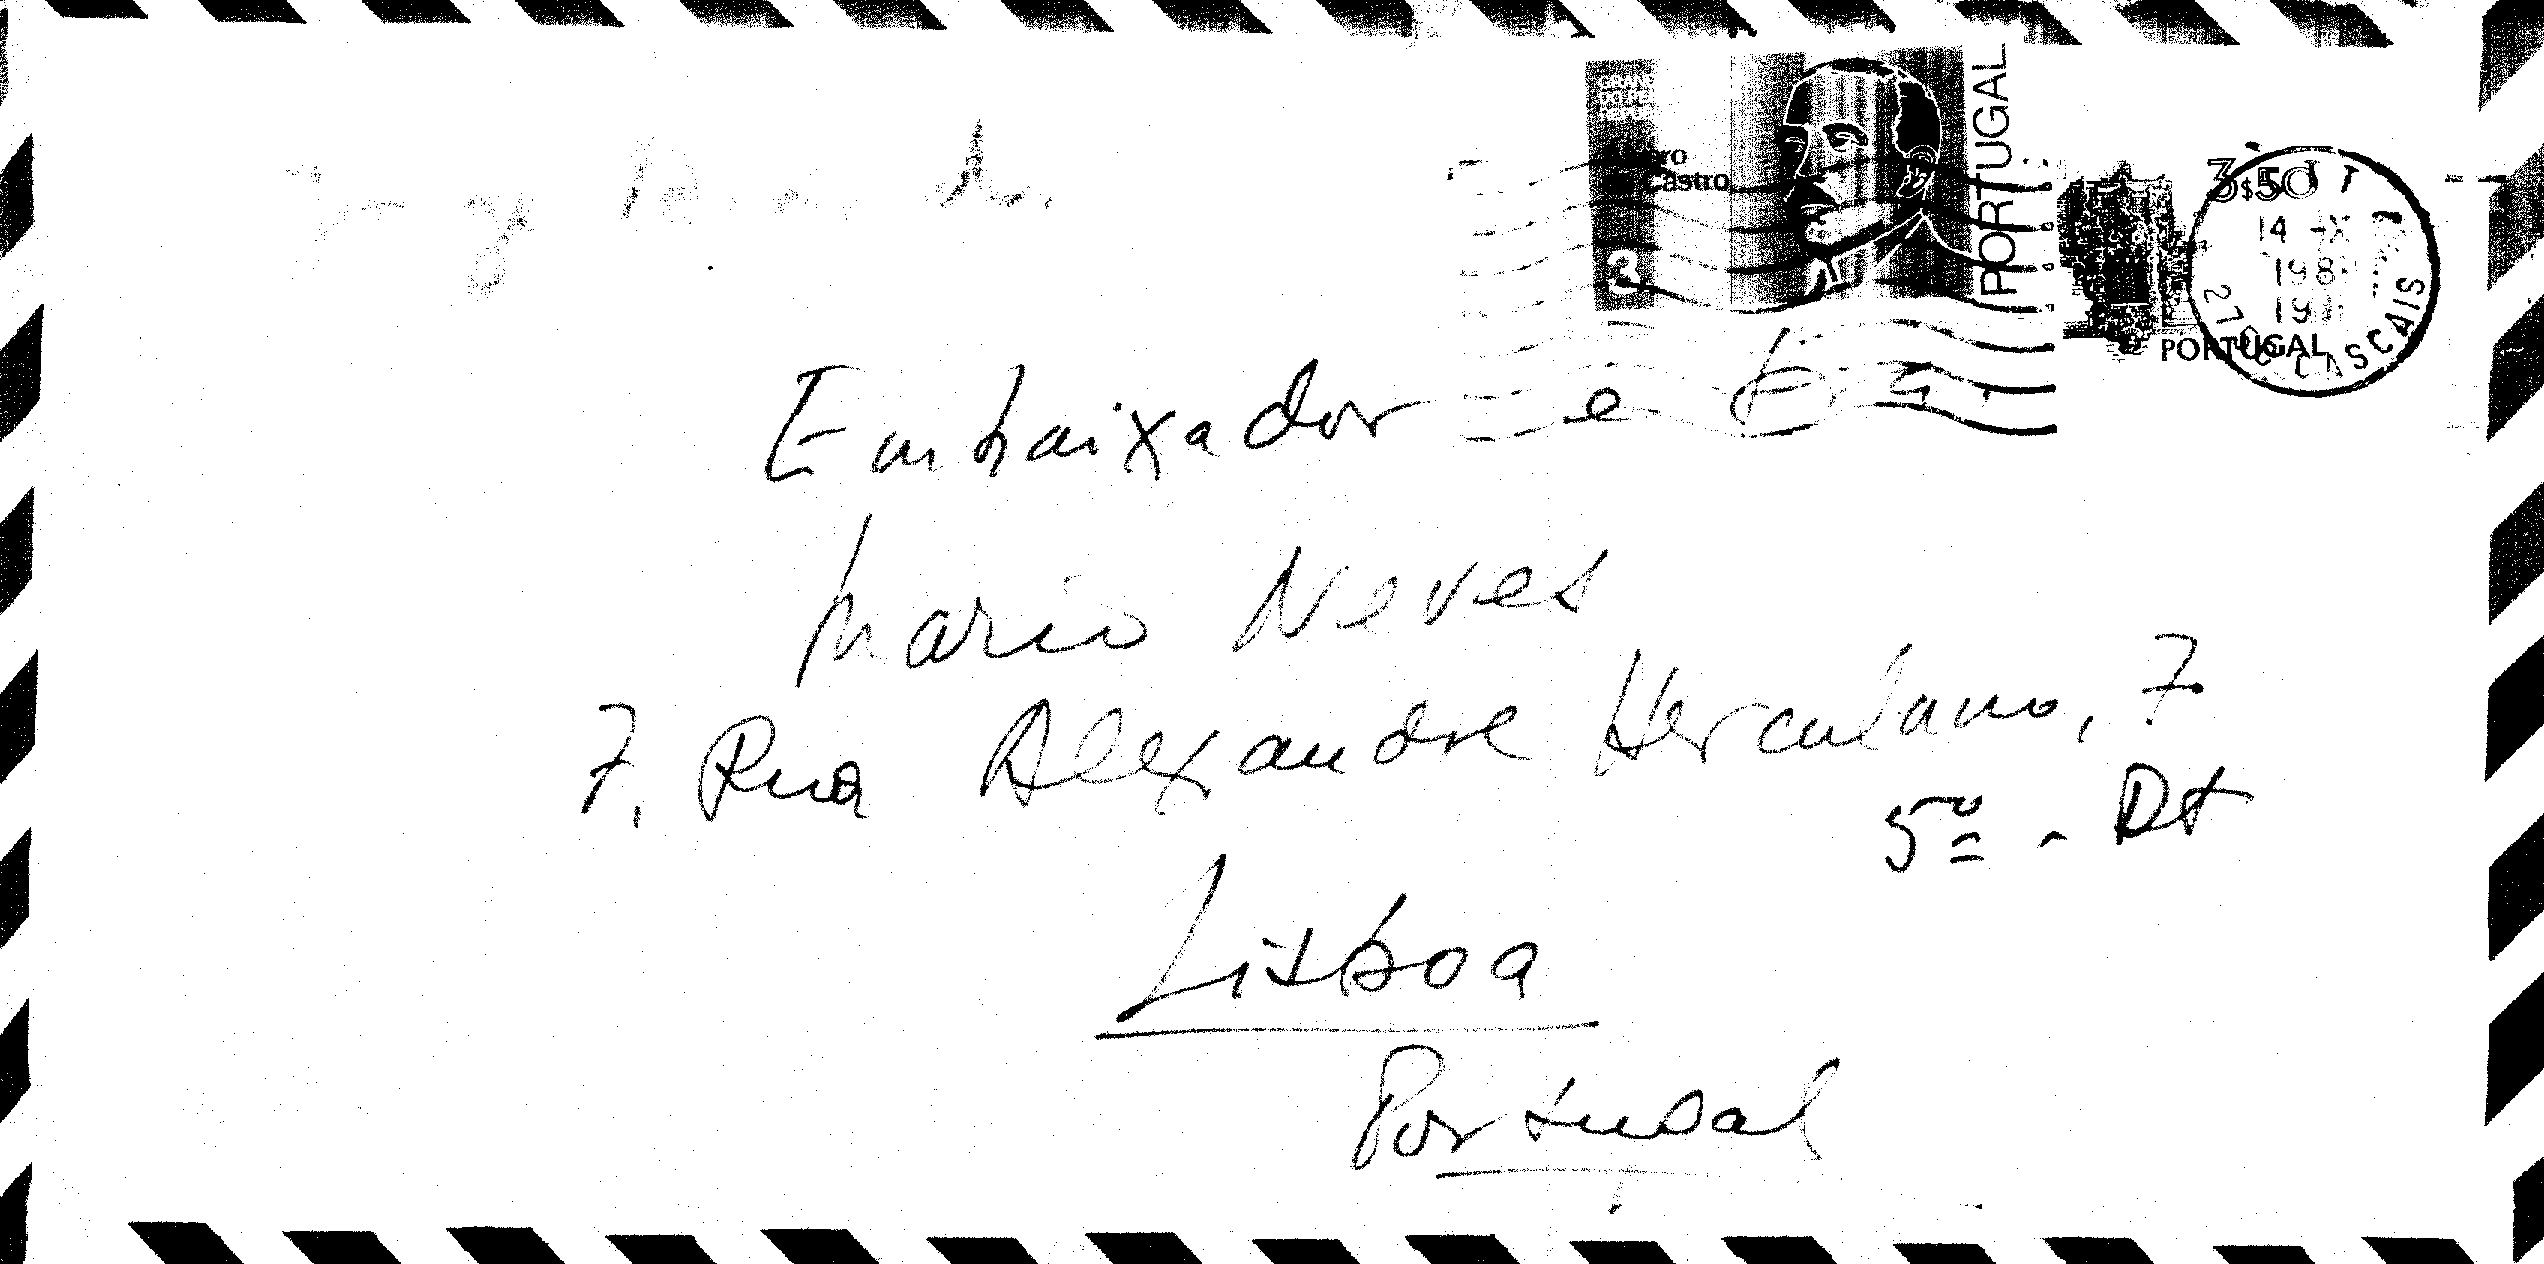 Castro
3
PORTUGAL
3$50
PORTUGAL
CTT
14 -X
198
19
2750 CASCAIS
Embaixador e
Mario Neves
7, Rua Alexandre Herculano, 7
5º - Dt
Lisboa
Portugal